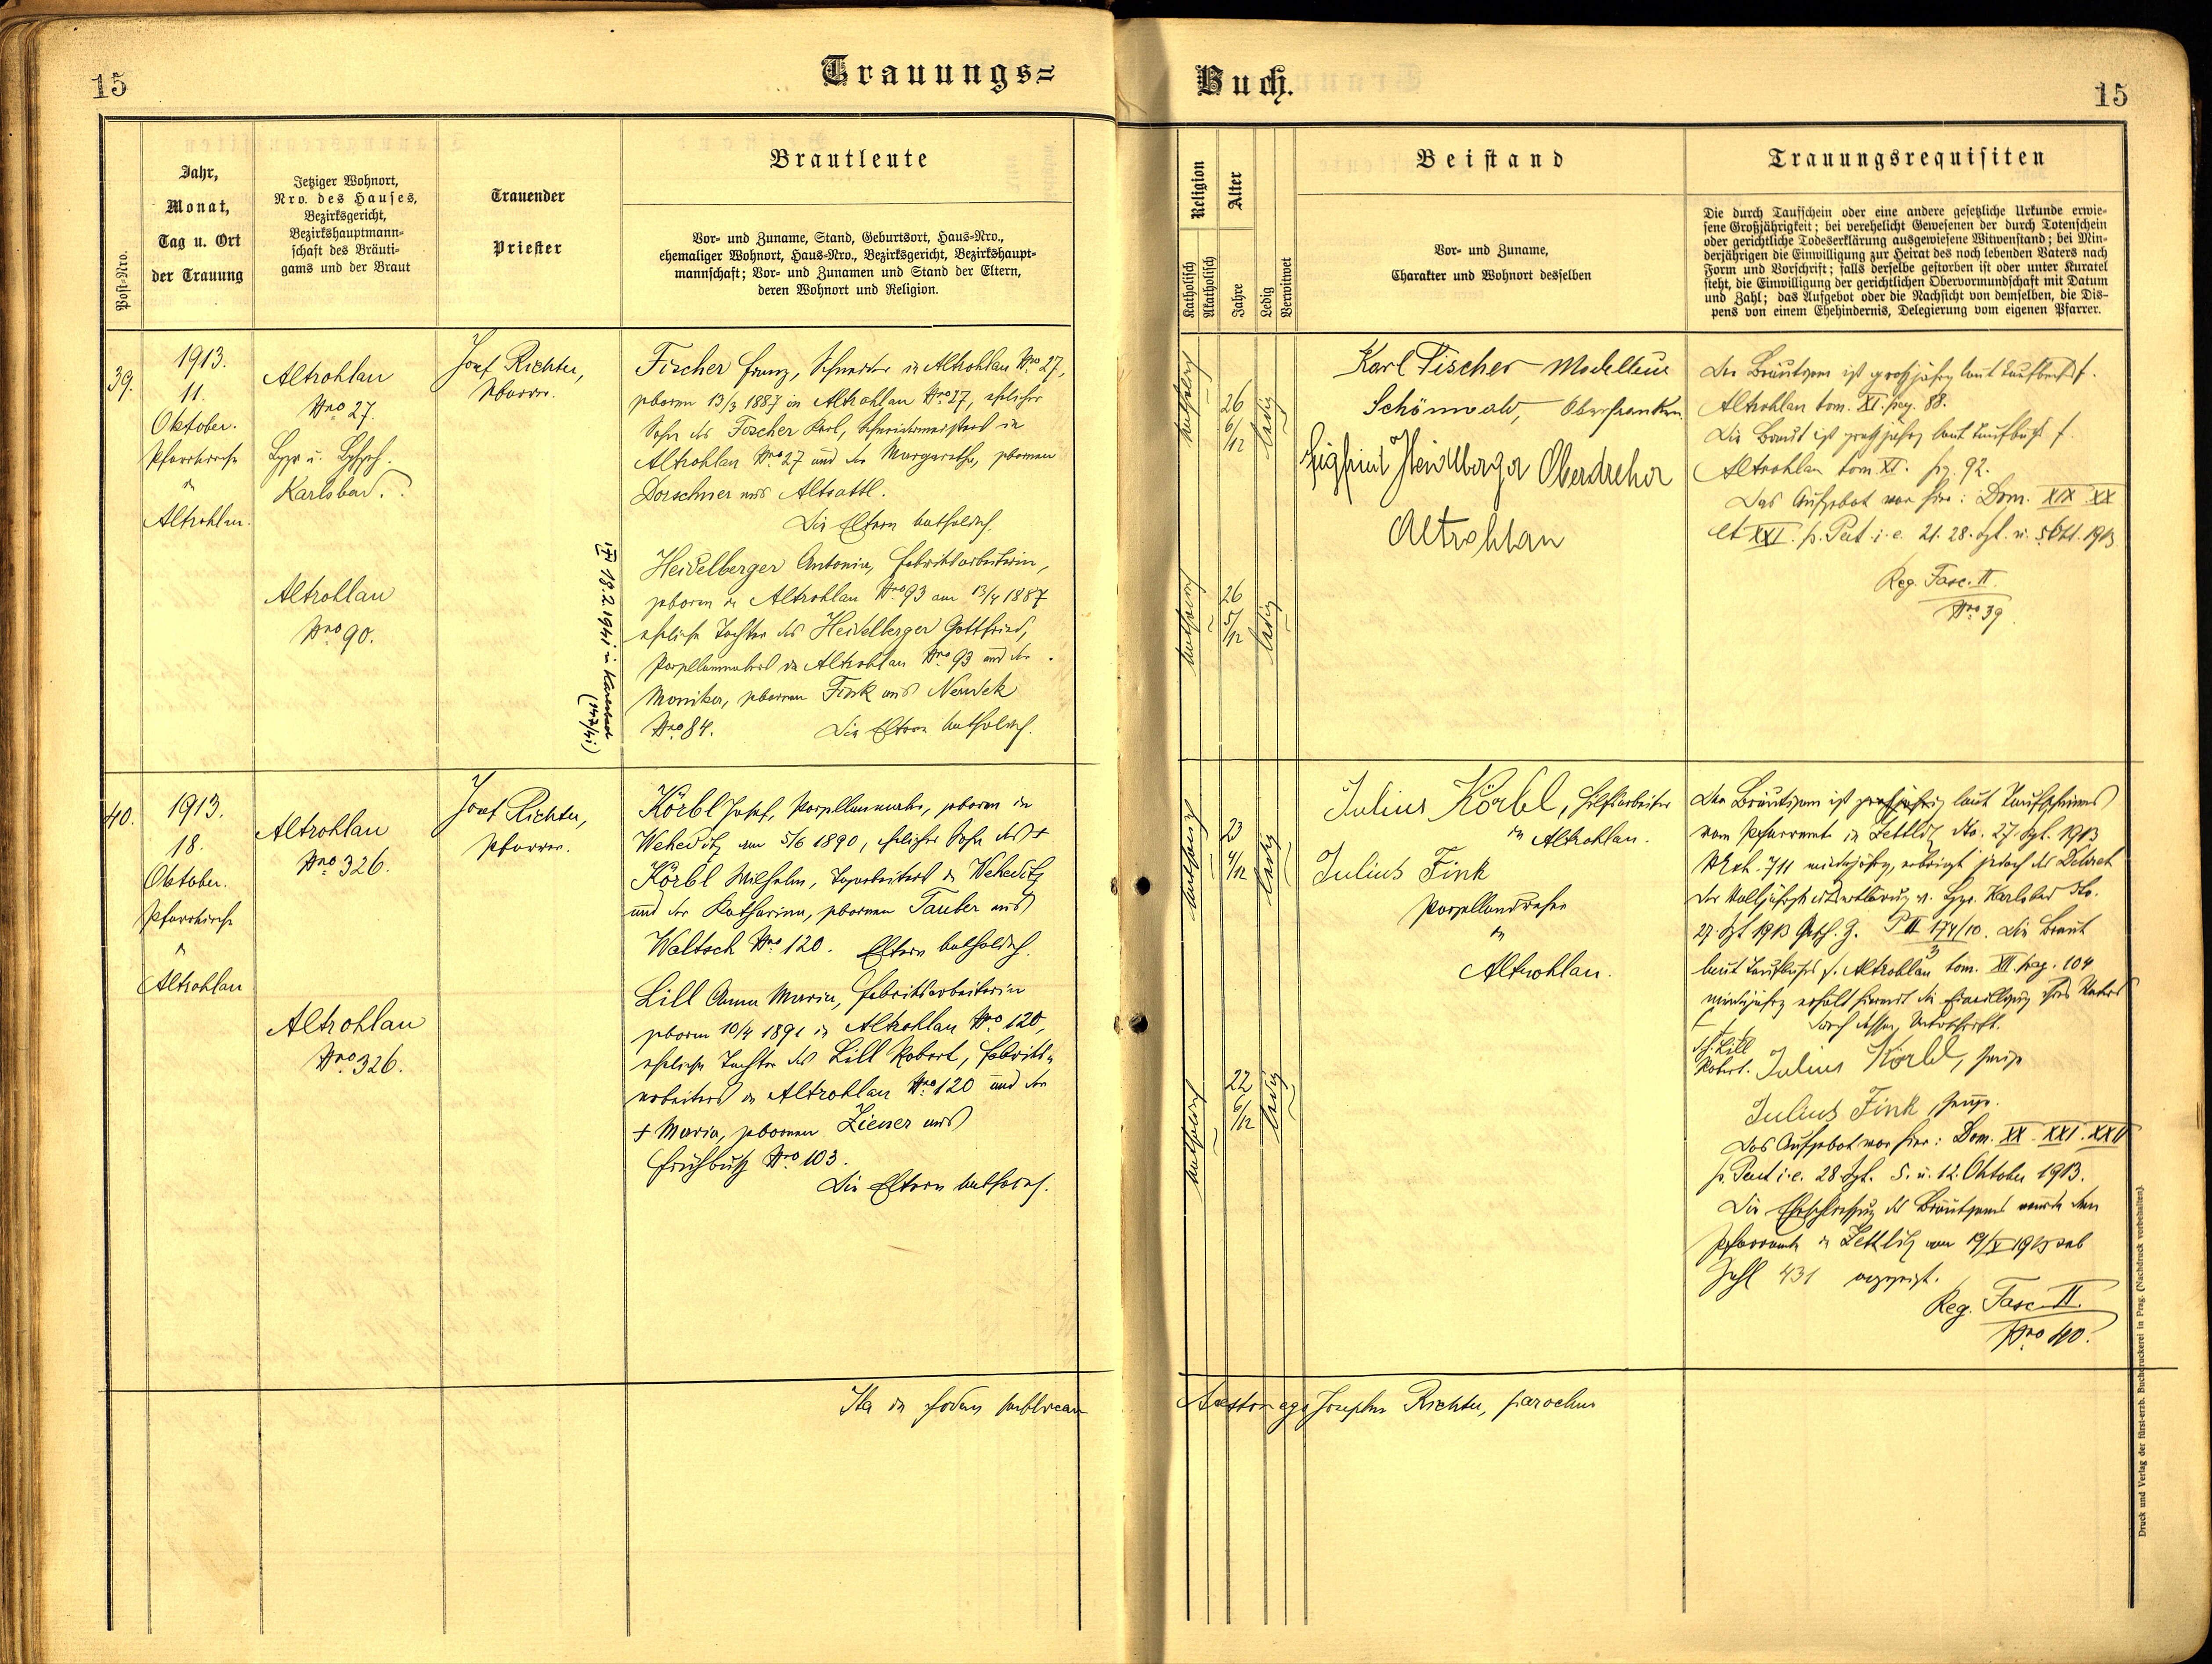 15
Trauungs=
Post-Nro.
Jahr,
Monat,
Tag u. Ort
der Trauung
Jetziger Wohnort,
Nro. des Hauses,
Bezirksgericht,
Bezirkshauptmann-
schaft des Bräuti-
gams und der Braut
Trauender
Priester
Brautleute
Vor- und Zuname, Stand, Geburtsort, Haus-Nro.,
ehemaliger Wohnort, Haus-Nro., Bezirksgericht, Bezirkshaupt-
mannschaft; Vor- und Zunamen und Stand der Eltern,
deren Wohnort und Religion.
39.
1913.
11.
Oktober.
Pfarrkirche
in
Altrohlau.
Altrohlau
Nro 27.
Karlsbad.
Altrohlau
Nro 90.
Josef Richter,
Pfarrer.
Fischer Franz, Schneider in Altrohlau Nro 27,
geboren 13/3 1887 in Altrohlau Nro 27, ehelicher
Sohn des Fischer Karl, Schneidermeisters in
Altrohlau Nro 27 und der Margaretha, geborenen
Dorschner aus Altsattl.
Die Eltern katholisch.
Heidelberger Antonia, Fabriksarbeiterin,
geboren in Altrohlau Nro 93 am 13/4 1887
eheliche Tochter des Heidelberger Gottfried,
in Altrohlau Nro 93 und der
Monika, geborenen Fink aus Neudek
Nro 84. Die Eltern katholisch.
18.2.1941 in Karlsbad
(147/41)
40.
1913.
18.
Oktober.
Pfarrkirche
in
Altrohlau
Altrohlau
Nro 326.
Altrohlau
Nro 326.
Josef Richter,
Pfarrer.
Körbl Josef, geboren in
Weheditz am 5/6 1890, ehelicher Sohn des +
Körbl Wilhelm, in Weheditz
und der Katharina, geborenen Tauber aus
Waltsch Nro 120. Eltern katholisch.
Lill Anna Maria, Fabriksarbeiterin
geboren 10/4 1891 in Altrohlau Nro 120,
eheliche Tochter des Lill Robert, Fabriks-
arbeiters in Altrohlau Nro 120 und der
+ Maria, geborenen Ziener aus
Frühbuß Nro 103.
Die Eltern katholisch.
Ita in fidem publicam
Buch.
15
Religion
Katholisch
Akatholisch
Alter
Jahre
Ledig
Verwitwet
Beistand
Vor- und Zuname,
Charakter und Wohnort desselben
Trauungsrequisiten
Die durch Taufschein oder eine andere gesetzliche Urkunde erwie-
sene Großjährigkeit; bei verehelicht Gewesenen der durch Totenschein
oder gerichtliche Todeserklärung ausgewiesene Witwenstand; bei Min-
derjährigen die Einwilligung zur Heirat des noch lebenden Vaters nach
Form und Vorschrift; falls derselbe gestorben ist oder unter Kuratel
steht, die Einwilligung der gerichtlichen Obervormundschaft mit Datum
und Zahl; das Aufgebot oder die Nachsicht von demselben, die Dis-
pens von einem Ehehindernis, Delegierung vom eigenen Pfarrer.
katholisch
26
6/12
ledig
katholisch
26
5/12
ledig
Karl Fischer Modelleur
Schönwald, Oberfranken.
Sigfried Heidelberger Oberdreher
Altrohlau
Der Bräutigam ist großjährig laut Taufbuch f.
Altrohlau tom. XI. pag. 88.
Die Braut ist großjährig laut Taufbuch f.
Altrohlau tom. XI. pag. 92.
Das Aufgebot war hier: Dom. XIX XX
et XXI. p. Pent. i. e. 21. 28. Spt. u. 5. Okt. 1913
Reg. Fasc. II.
Nro 39
katholisch
23
4/12
ledig
katholisch
22
6/12
ledig
Julius Körbl, Hilfsarbeiter
in Altrohlau.
Julius Fink
Porzellandreher
in
Altrohlau.
Der Bräutigam ist großjährig laut Taufscheines
vom Pfarramte in Zettlitz dto. 27. Spt. 1913
711 minderjährig, erbringt jedoch das Dekret
der Volljährigkeitserklärung v. Karlsbad dto.
27. Spt 1913 Gesch. Z. P II 174/10. Die Braut
3
laut Taufbuches f. Altrohlau tom. XII. pag. 104
minderjährig erhält hiermit die Einwilligung ihres Vaters
durch dessen Unterschrift.
Lill
Robert. Julius Körbl, Zeuge
Julius Fink, Zeuge.
Das Aufgebot war hier: Dom. XX. XXI. XXII
p. Pent i. e. 28 Spt. 5. u. 12. Oktober 1913.
Die Eheschließung des Bräutigams wurde dem
Pfarramte in Zettlitz am 19/X 1913 sub
Zahl 431 angezeigt.
Reg. Fasc. II.
Nro 40.
Attestor ego Josephus Richter, parochus
Druck und Verlag der fürst-erzb. Buchdruckerei in Prag. (Nachdruck vorbehalten).